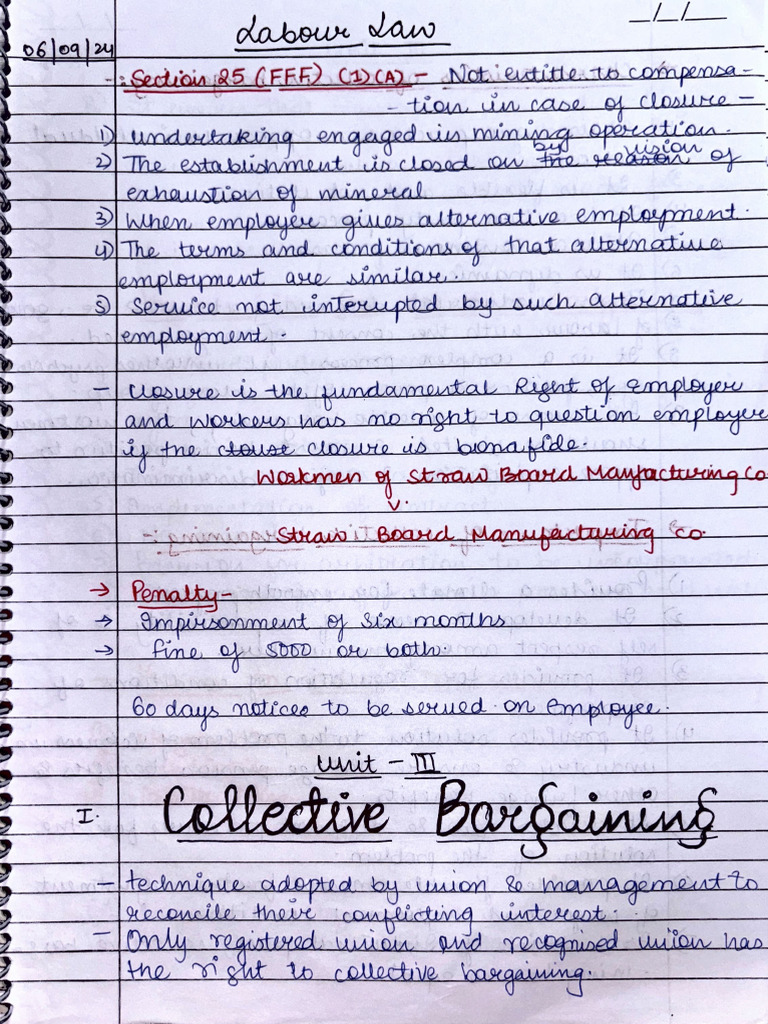 Labour Law
_/_/__
06/09/24
-: Section 25 (FFF) (1)(A) - Not entitle to compensa-
- tion in case of closure -
1) Undertaking engaged in mining operation.
by vision
2) The establishment is closed on the reason of
exhaustion of mineral
3) When employer gives alternative employment.
4) The terms and conditions of that alternative
employment are similar.
5) Service not interrupted by such alternative
employment.
- Closure is the fundamental Right of Employer
and Workers has no right to question employer
if the closure is bonafide.
Workmen of Straw Board Maufacturing Co
V.
Straw Board Manufacturing Co.
→ Penalty-
→ Impirsonment of six months
→ fine of 5000 or both.
60 days notices to be served on Employee.
Unit - III
I. Collective Bargaining
- technique adopted by union & management to
reconcile their conflicting interest.
- Only registered union and recognised union has
the right to collective bargaining.